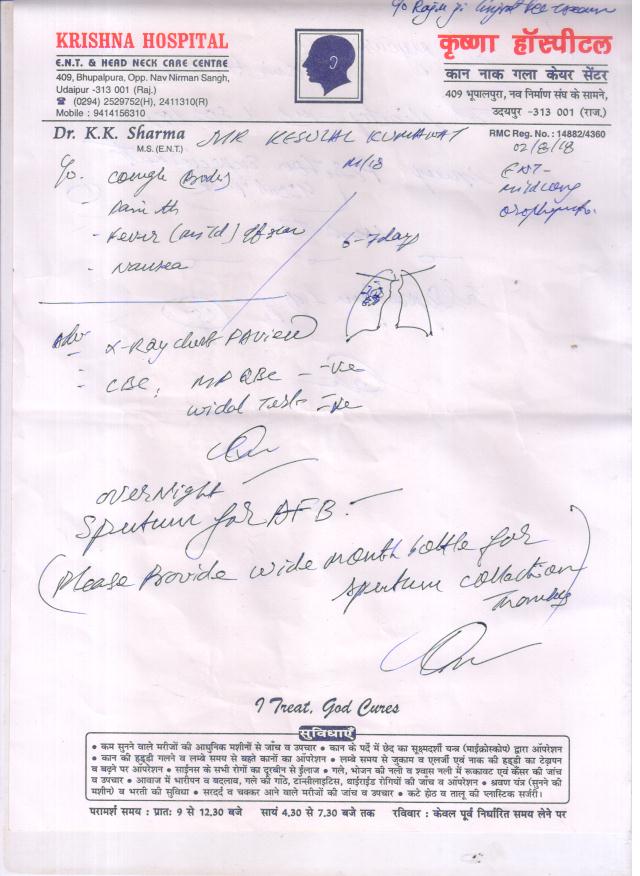 KRISHNA HOSPITAL
E.N.T. & HEAD NECK CARE CENTRE
409, Bhupalpura, Opp. Nav Nirman Sangh,
Udaipur -313 001 (Raj.)
☎ (0294) 2529752(H), 2411310(R)
Mobile : 9414156310
कृष्णा हॉस्पीटल
कान नाक गला केयर सेंटर
409 भूपालपुरा, नव निर्माण संघ के सामने,
उदयपुर -313 001 (राज.)
Dr. K.K. Sharma
M.S. (E.N.T.)
MR KESULAL KUMAWAT
M/18
RMC Reg. No. : 14882/4360
02/8/18
ENT-
c/o. cough
- Fever (mild)
6-7 days
- Nausea
Adv
X-Ray chest PA view
- CBC, MP QBC - -ve
widal Test - -ve
overnight
Sputum for AFB.
(Please Provide wide mouth bottle for
sputum collection
I Treat, God Cures
सुविधाएँ
• कम सुनने वाले मरीजों की आधुनिक मशीनों से जाँच व उपचार • कान के पर्दे में छेद का सूक्ष्मदर्शी यन्त्र (माईक्रोस्कोप) द्वारा आपरेशन
• कान की हड्डी गलने व लम्बे समय से बहते कानों का आपरेशन • लम्बे समय से जुकाम व एलर्जी एवं नाक की हड्डी का टेढ़ापन
व बढ़ने पर ऑपरेशन • साईनस के सभी रोगों का दूरबीन से ईलाज • गले, भोजन की नली व श्वास नली में रूकावट एवं कैंसर की जांच
व उपचार • आवाज में भारीपन व बदलाव, गले की गांठे, टान्सीलाईटिस, थाईराईड रोगियों की जांच व ऑपरेशन • श्रवण यंत्र (सुनने की
मशीन) व भरती की सुविधा • सरदर्द व चक्कर आने वाले मरीजों की जांच व उपचार • कटे होठ व तालू की प्लास्टिक सर्जरी।
परामर्श समय : प्रातः 9 से 12.30 बजे सायं 4.30 से 7.30 बजे तक रविवार : केवल पूर्व निर्धारित समय लेने पर